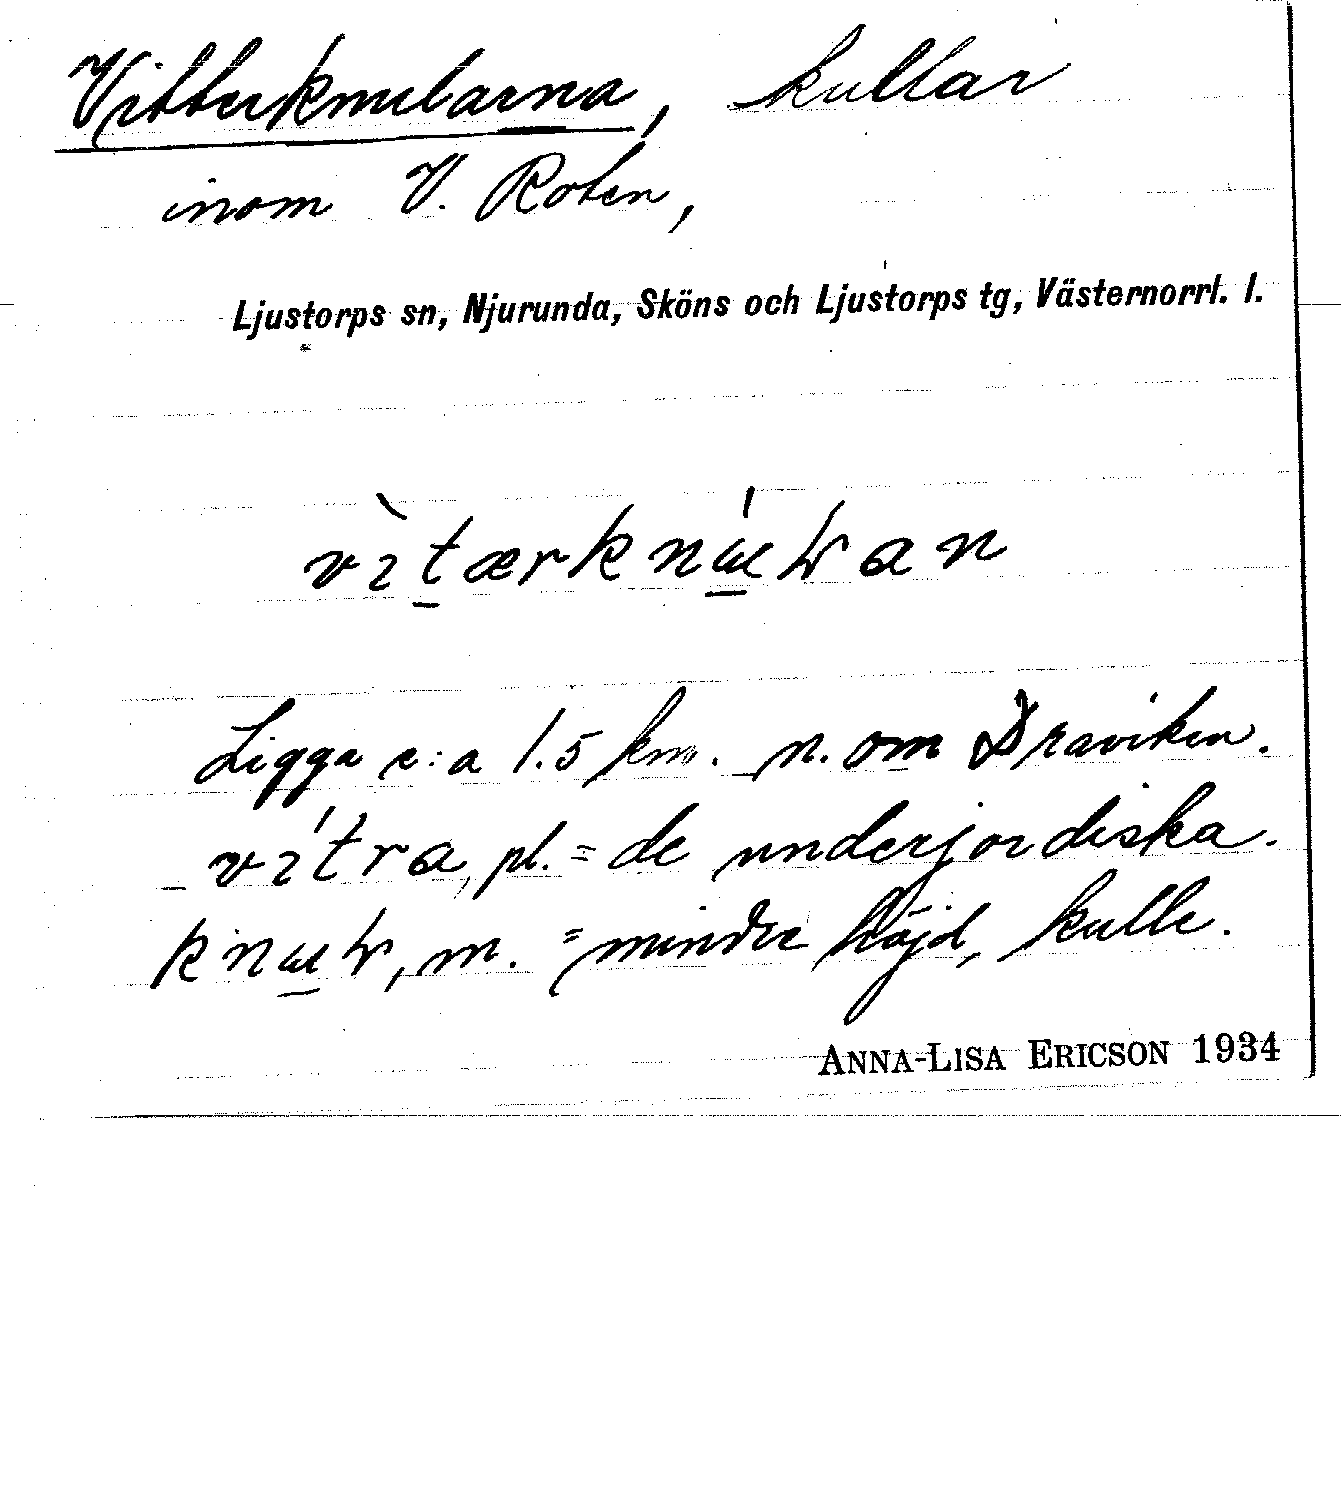 Vitterknularna, kullar
inom V. Roten,
Ljustorps sn, Njurunda, Sköns och Ljustorps tg, Västernorrl. l.
Ligga c:a 1.5 km. n. om Draviken.
vitra, pl. = de underjordiska.
m. = mindre höjd, kulle.
ANNA-LISA ERICSON 1934